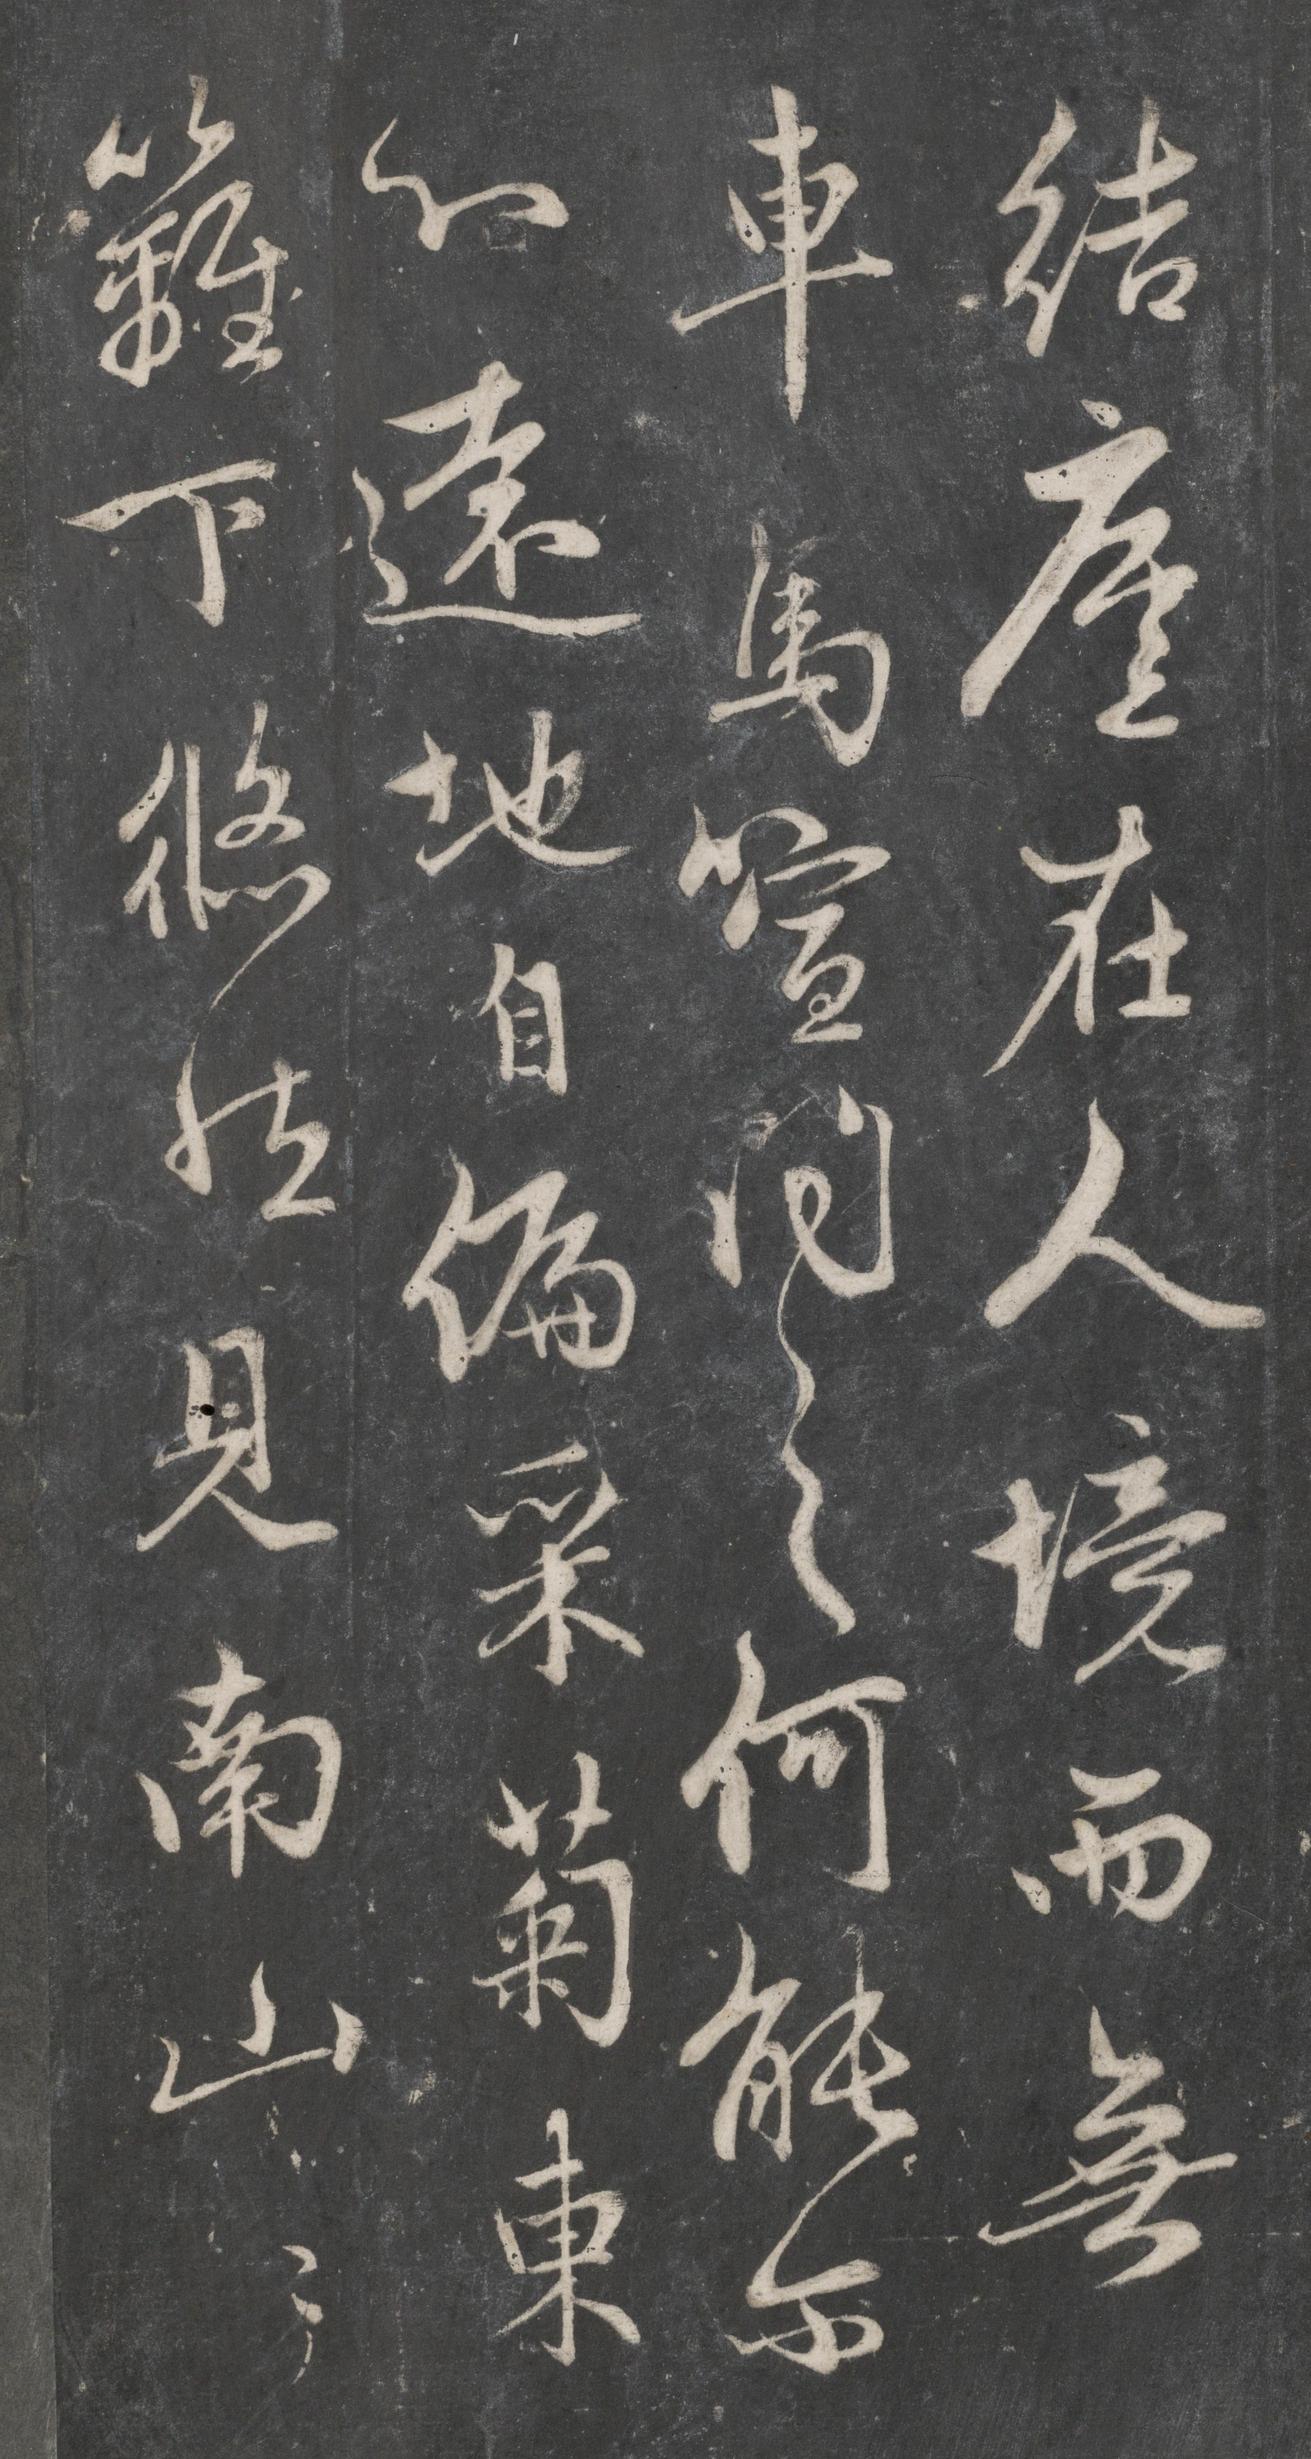 結廬在人境而無
車馬喧問之何能尔
心遠地自偏采菊東
籬下悠然見南山〻